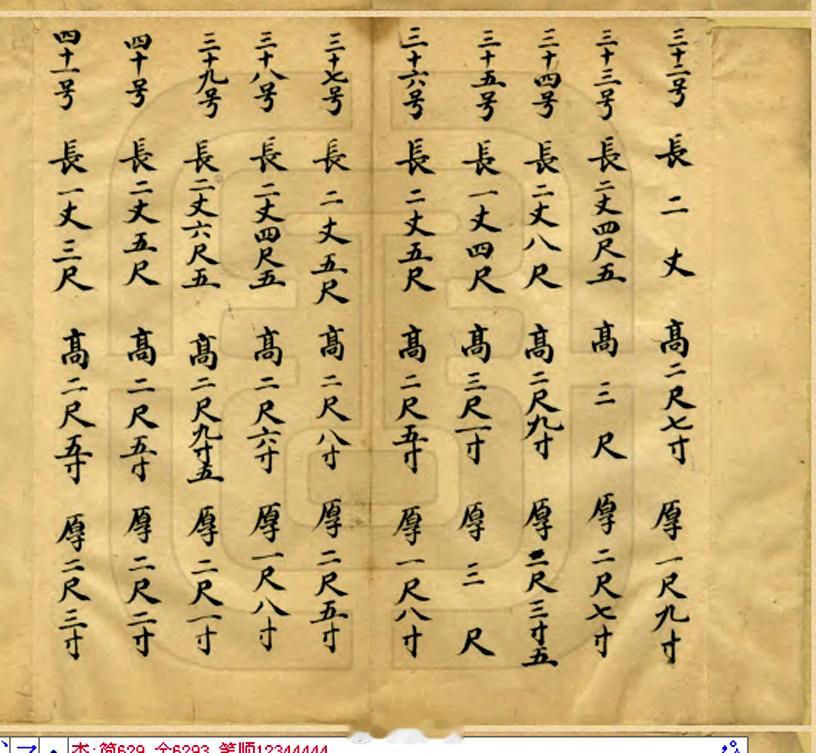 三十二号 長二丈 高二尺七寸 厚一尺九寸
三十三号 長二丈四尺五 高三尺 厚二尺七寸
三十四号 長二丈八尺 高二尺九寸 厚二尺三寸五
三十五号 長一丈四尺 高三尺一寸 厚三尺
三十六号 長二丈五尺 高二尺五寸 厚一尺八寸
三十七号 長二丈五尺 高二尺八寸 厚二尺五寸
三十八号 長二丈四尺五 高二尺六寸 厚一尺八寸
三十九号 長二丈六尺五 高二尺九寸五 厚二尺一寸
四十号 長二丈五尺 高二尺五寸 厚二尺二寸
四十一号 長一丈三尺 高二尺五寸 厚二尺三寸
杰:简629 全6293 笔顺12344444